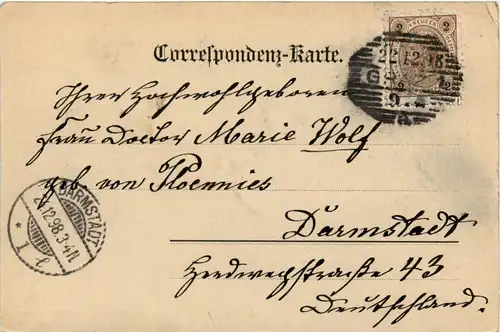 Correspondenz-Karte.
2 KREUZER 2
22 12.98
Ihrer Hochwohlgeboren
Frau Doctor Marie Wolf
geb. von Ploennies
DARMSTADT
12.98.3-4N
* 1
Darmstadt
Herdwegstraße 43
Deutschland.